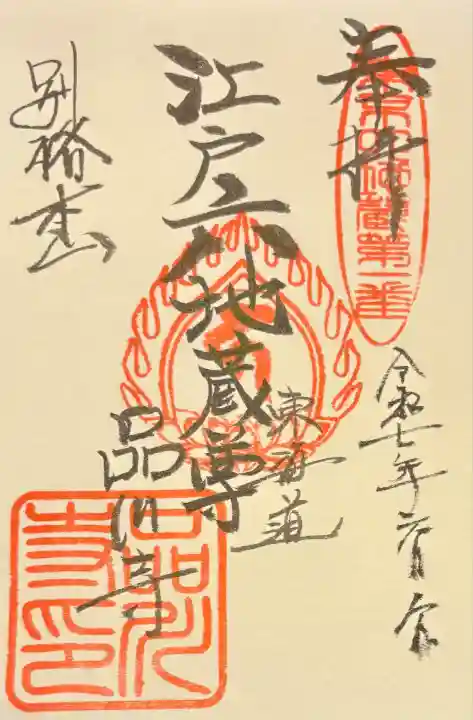 奉拝
江戸六地蔵第一番
令和七年
江戸六地蔵尊
東海道
品川寺
別格本山
品川寺印